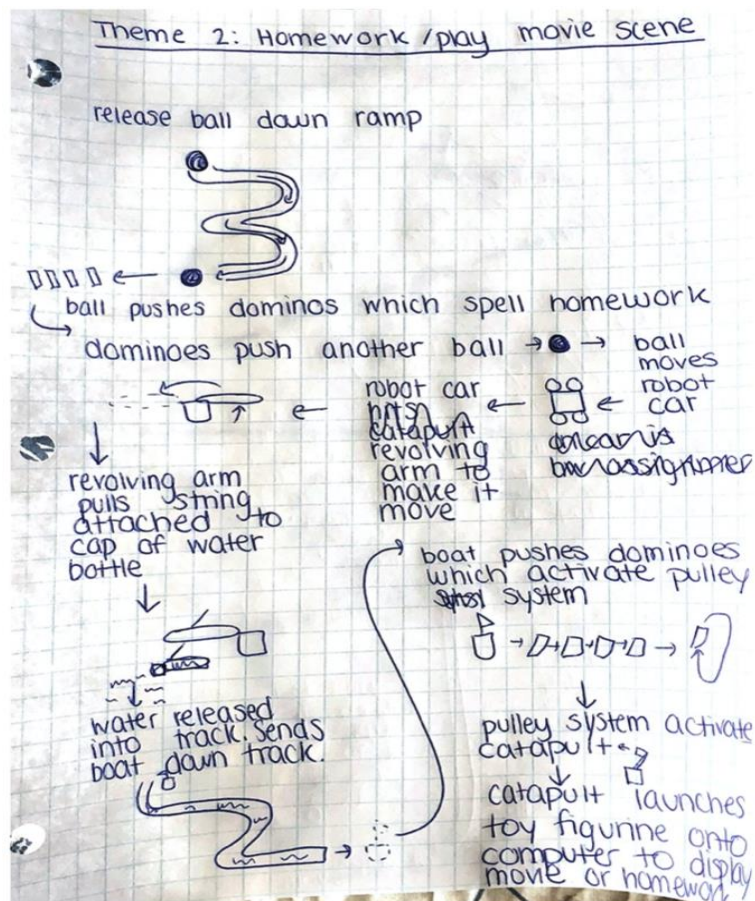 Theme 2: Homework/play movie scene
release ball down ramp
ball pushes dominos which spell homework
dominoes push another ball
ball
moves
robot
car
robot car
hits
catapult
revolving
arm to
make it
move
revolving arm
pulls string
attached to
cap of water
bottle
water released
into track. Sends
boat down track.
boat pushes dominoes
which activate pulley
system
pulley system activate
catapult
catapult launches
toy figurine onto
computer to display
movie or homework